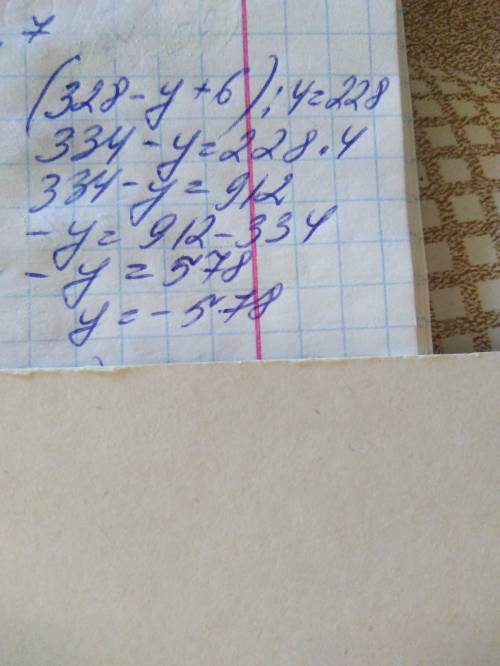 7
(328-y+6):4=228
334-y=228·4
334-y=912
-y=912-334
-y=578
y=-578